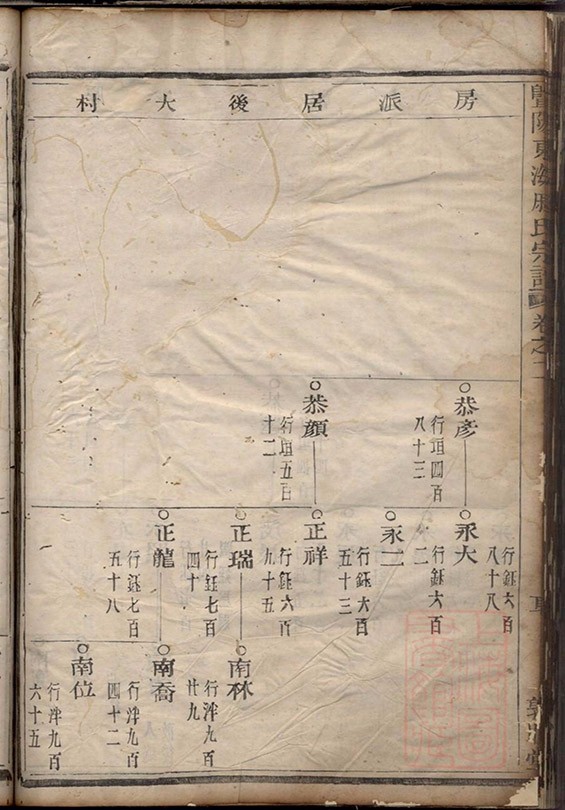 房派居後大村
暨陽東海 氏宗譜 卷之二
恭彦
行垣四百
八十三
恭顔
行垣五百
十二
行鈺六百
八十八
永大
行鈺六百
二
永二
行鈺六百
五十三
正祥
行鈺六百
九十五
正瑞
行鈺七百
四十
正龍
行鈺七百
五十八
南林
行泮九百
廿九
南喬
行泮九百
四十二
南位
行泮九百
六十五